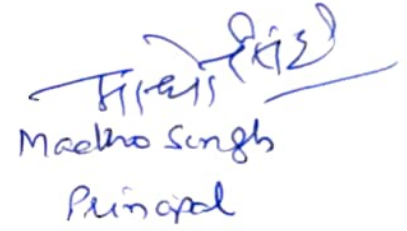 माधो सिंह
Madho Singh
Principal